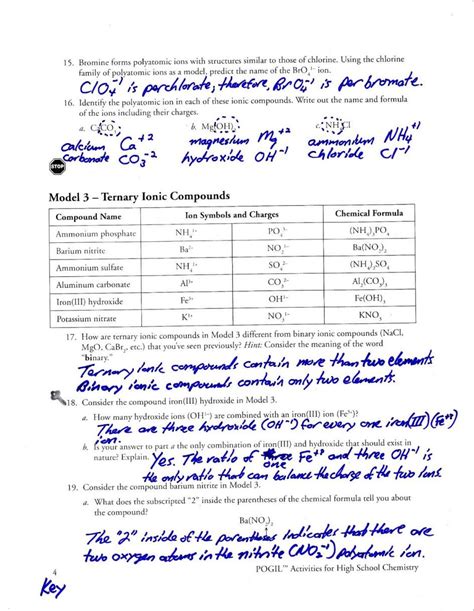 15. Bromine forms polyatomic ions with structures similar to those of chlorine. Using the chlorine
family of polyatomic ions as a model, predict the name of the BrO₄¹⁻ ion.
ClO₄⁻¹ is perchlorate, therefore, BrO₄⁻¹ is perbromate.
16. Identify the polyatomic ion in each of these ionic compounds. Write out the name and formula
of the ions including their charges.
a. CaCO₃ b. Mg(OH)₂ c. NH₄Cl
calcium Ca⁺² magnesium Mg⁺² ammonium NH₄⁺¹
carbonate CO₃⁻² hydroxide OH⁻¹ chloride Cl⁻¹
STOP
Model 3 – Ternary Ionic Compounds
Compound Name Ion Symbols and Charges Chemical Formula
Ammonium phosphate NH₄¹⁺ PO₄³⁻ (NH₄)₃PO₄
Barium nitrite Ba²⁺ NO₂¹⁻ Ba(NO₂)₂
Ammonium sulfate NH₄¹⁺ SO₄²⁻ (NH₄)₂SO₄
Aluminum carbonate Al³⁺ CO₃²⁻ Al₂(CO₃)₃
Iron(III) hydroxide Fe³⁺ OH¹⁻ Fe(OH)₃
Potassium nitrate K¹⁺ NO₃¹⁻ KNO₃
17. How are ternary ionic compounds in Model 3 different from binary ionic compounds (NaCl,
MgO, CaBr₂, etc.) that you've seen previously? Hint: Consider the meaning of the word
"binary."
Ternary ionic compounds contain more than two elements
Binary ionic compounds contain only two elements.
18. Consider the compound iron(III) hydroxide in Model 3.
a. How many hydroxide ions (OH¹⁻) are combined with an iron(III) ion (Fe³⁺)?
There are three hydroxide (OH⁻¹) for every one iron(III) (Fe⁺³)
ion.
b. Is your answer to part a the only combination of iron(III) and hydroxide that should exist in
nature? Explain. Yes. The ratio of one Fe⁺³ and three OH⁻¹ is
the only ratio that can balance the charge of the two ions.
19. Consider the compound barium nitrite in Model 3.
a. What does the subscripted "2" inside the parentheses of the chemical formula tell you about
the compound?
Ba(NO₂)₂
The "2" inside of the parentheses indicates that there are
two oxygen atoms in the nitrite (NO₂⁻¹) polyatomic ion.
4 POGIL™ Activities for High School Chemistry
Key